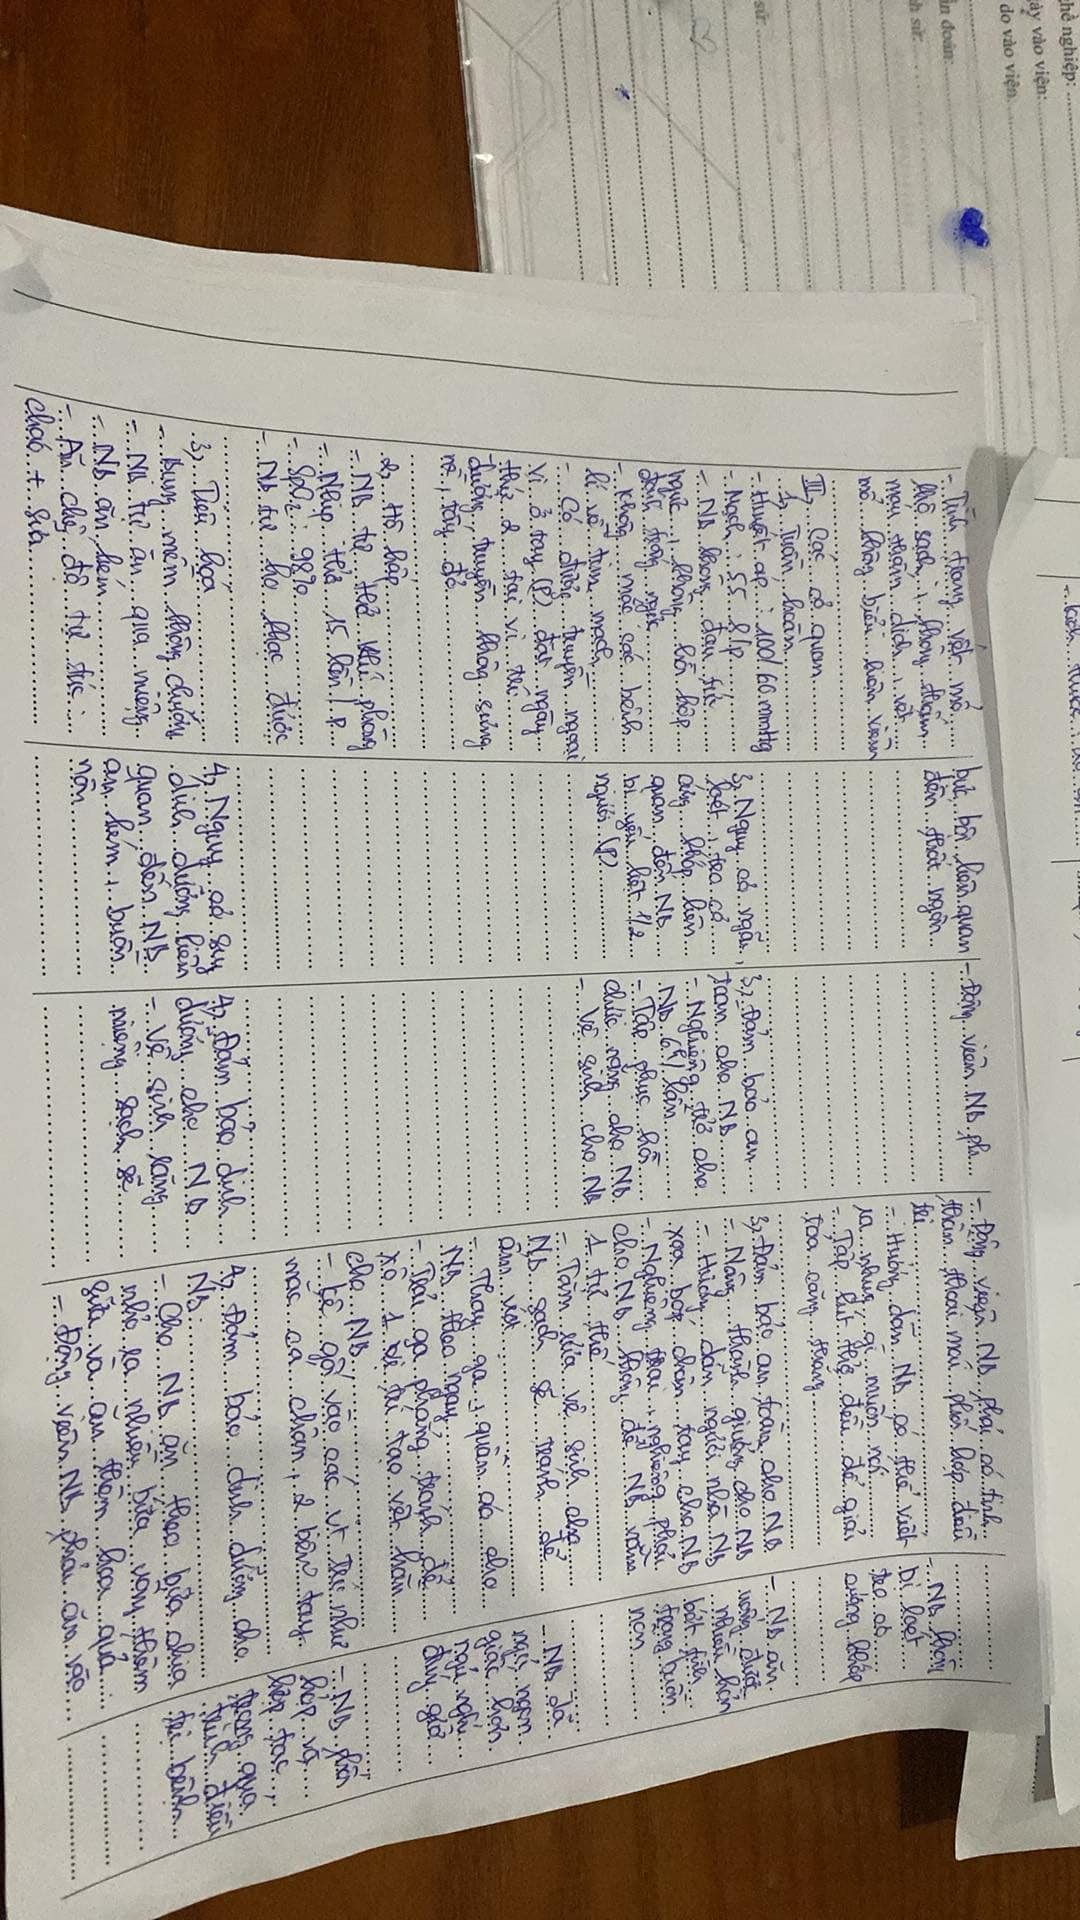 - Tình trạng vết mổ
khô sạch, không thấm
máu, thấm dịch, vết
mổ không biểu hiện viêm
III, Các cơ quan
1, Tuần hoàn
- Huyết áp: 100/60 mmHg
- Mạch: 55 l/p
- NB không đau tức
ngực, không hồi hộp
đánh trống ngực
- Không mắc các bệnh
lí về tim mạch
- Có đường truyền ngoại
vi ở tay (P) đặt ngày
thứ 2 tại vị trí
đường truyền không sưng
nề, tấy đỏ
2, Hô hấp
- NB tự thở khí phòng
- Nhịp thở 15 lần / p
- SpO2: 98%
- NB tự ho khạc được
3, Tiêu hóa
- Bụng mềm không chướng
- NB tự ăn qua miệng
- NB ăn kém
- Ăn chế độ tự túc:
cháo + sữa
bực bội liên quan
đến thất ngôn
3, Nguy cơ ngã,
loét, teo cơ
cứng khớp liên
quan đến NB
bị yếu liệt 1/2
người (P)
4, Nguy cơ suy
dinh dưỡng liên
quan đến NB
ăn kém, buồn
nôn
- Động viên NB
3, Đảm bảo an
toàn cho NB
- Nghiêng trở cho
NB 6h/lần
- Tập phục hồi
chức năng cho NB
- Vệ sinh cho NB
4, Đảm bảo dinh
dưỡng cho NB
- Vệ sinh răng
miệng sạch sẽ
- Động viên NB phải có tinh
thần thoải mái phối hợp điều
trị
- Hướng dẫn NB có thể viết
ra những gì muốn nói
- Tập hít thở đều để giải
tỏa căng thẳng
3, Đảm bảo an toàn cho NB
- Nâng thành giường cho NB
- Hướng dẫn người nhà NB
xoa bóp chân tay cho NB
- Nghiêng trái, nghiêng phải
cho NB không để NB nằm
1 tư thế
- Tắm rửa vệ sinh cho
NB sạch sẽ tránh để
ẩm ướt
- Thay ga, quần áo cho
NB theo ngày
- Trải ga phẳng tránh để
xô 1 bị trí tạo vết hằn
cho NB
- Kê gối vào các vt trí như
mắc cá chân, 2 bên tay
4, Đảm bảo dinh dưỡng cho
NB
- Cho NB ăn theo bữa chia
nhỏ ra nhiều bữa, uống thêm
sữa và ăn thêm hoa quả
- Động viên NB phải ăn vào
- NB không
bị loét
teo cơ
cứng khớp
- NB ăn
uống được
nhiều hơn
bớt tình
trạng buồn
nôn
- NB đã
ngủ ngon
giấc hơn
ngủ nghỉ
đúng giờ
- NB phối
hợp và
hợp tác
trong quá
trình điều
trị bệnh